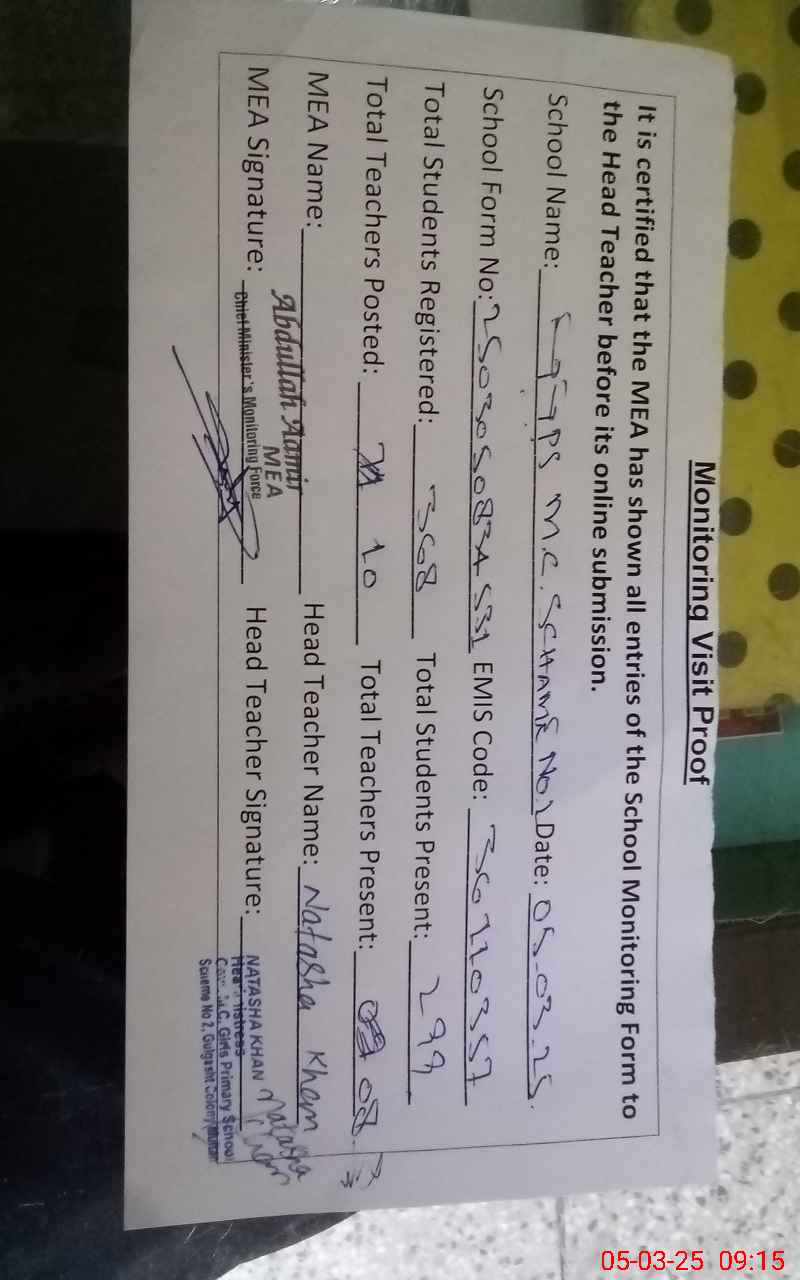 Monitoring Visit Proof
It is certified that the MEA has shown all entries of the School Monitoring Form to
the Head Teacher before its online submission.
School Name: M.C. SCHAME No.2 Date: 05-03-25.
School Form No: EMIS Code: 36110357
Total Students Registered: 368 Total Students Present: 299
Total Teachers Posted: 10 Total Teachers Present: 08
MEA Name: Abdullah Aamir Head Teacher Name: Natasha Khan
MEA
MEA Signature: Chief Minister's Monitoring Force Head Teacher Signature: Natasha Khan
NATASHA KHAN
Headmistress
Govt. M.C. Girls Primary School
Scheme No 2, Gulgasht Colony Multan
05-03-25 09:15